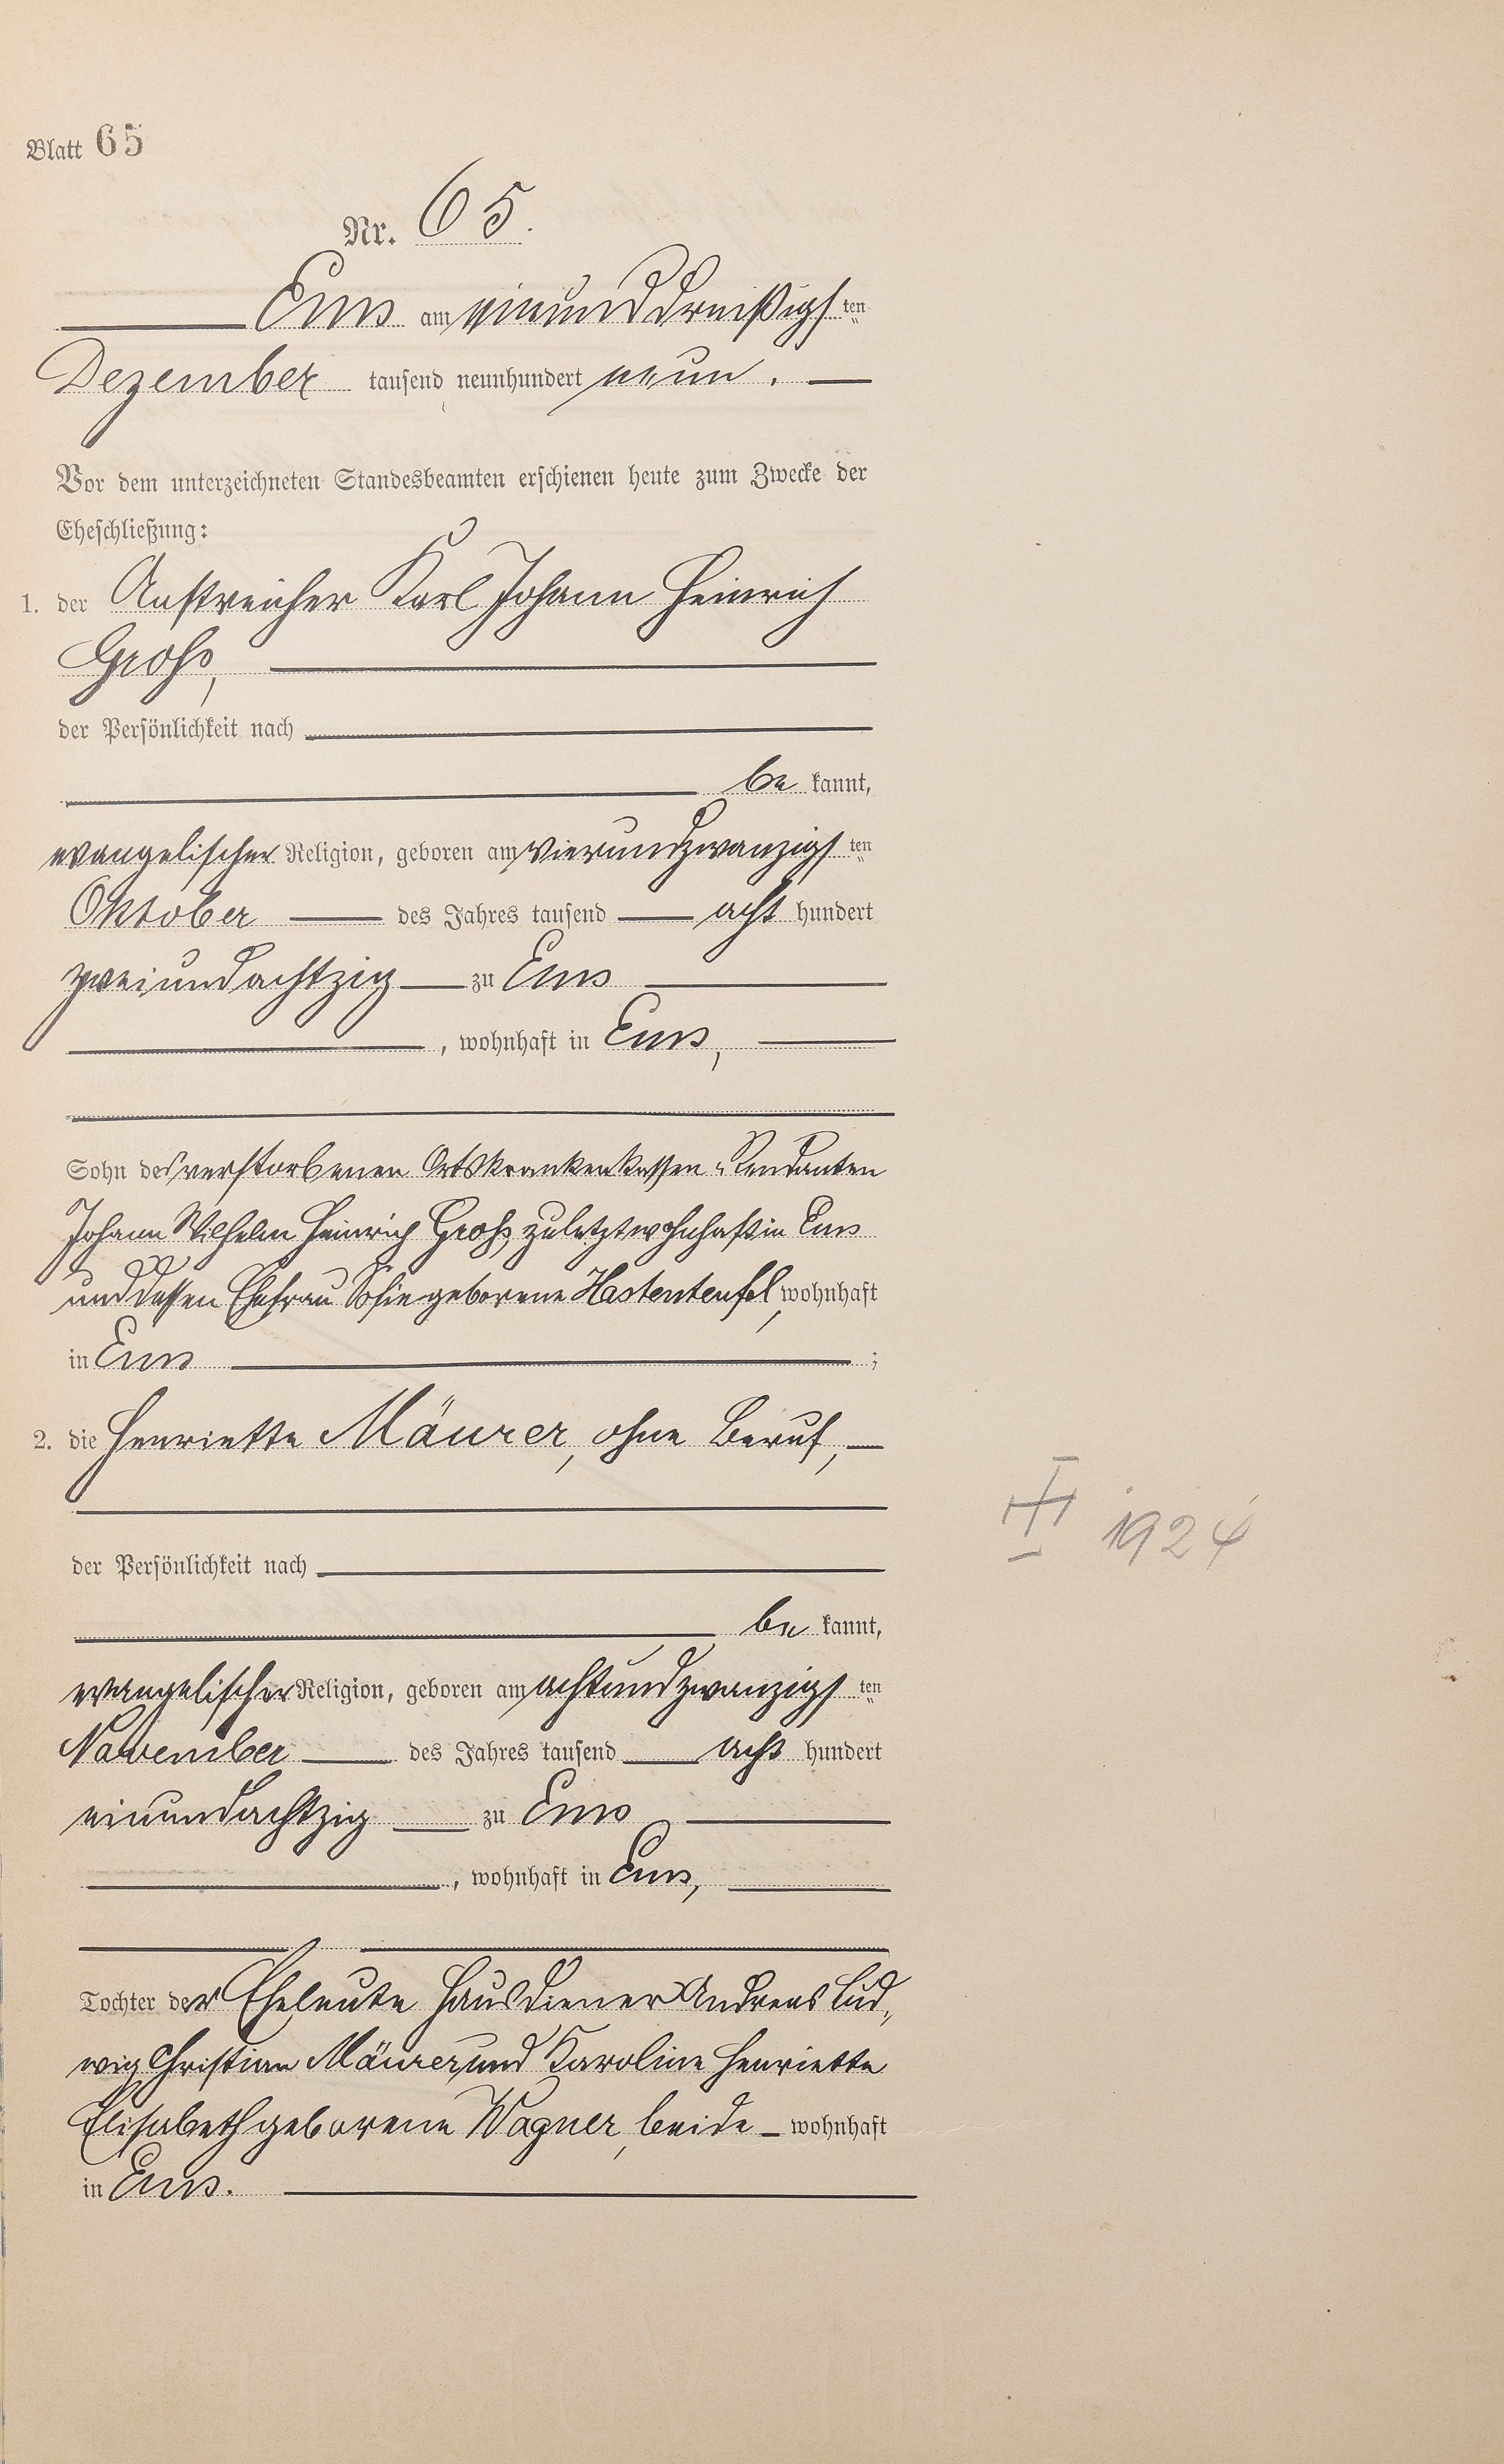 Blatt 65
Nr. 65.
Ems am einunddreißigsten
Dezember tausend neunhundert neun.
Vor dem unterzeichneten Standesbeamten erschienen heute zum Zwecke der
Eheschließung:
1. der Anstreicher Karl Johann Heinrich
Groß,
der Persönlichkeit nach
be kannt,
evangelischer Religion, geboren am vierundzwanzigsten
Oktober des Jahres tausend acht hundert
zweiundachtzig zu Ems
, wohnhaft in Ems,
Sohn des verstorbenen Ortskrankenkassen-Rendanten
Johann Wilhelm Heinrich Groß, zuletzt wohnhaft in Ems
und dessen Ehefrau Sofie geborene Hastenteufel, wohnhaft
in Ems ;
2. die Henriette Mäurer, ohne Beruf,
der Persönlichkeit nach
1924
be kannt,
evangelischer Religion, geboren am achtundzwanzigsten
November des Jahres tausend acht hundert
einundachtzig zu Ems
, wohnhaft in Ems,
Tochter der Eheleute Hausdiener Andreas Lud-
wig Christian Mäurer und Karoline Henriette
Elisabeth geborene Wagner, beide wohnhaft
in Ems.